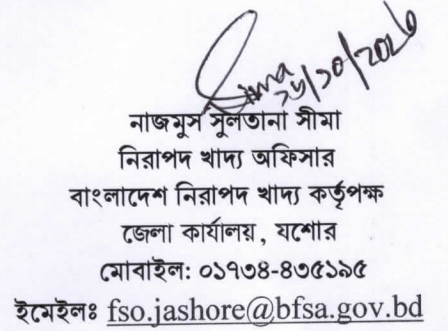 Sima
নাজমুস সুলতানা সীমা
নিরাপদ খাদ্য অফিসার
বাংলাদেশ নিরাপদ খাদ্য কর্তৃপক্ষ
জেলা কার্যালয়, যশোর
মোবাইল: ০১৭৩৪-৪৩৫১৯৫
ইমেইলঃ fso.jashore@bfsa.gov.bd